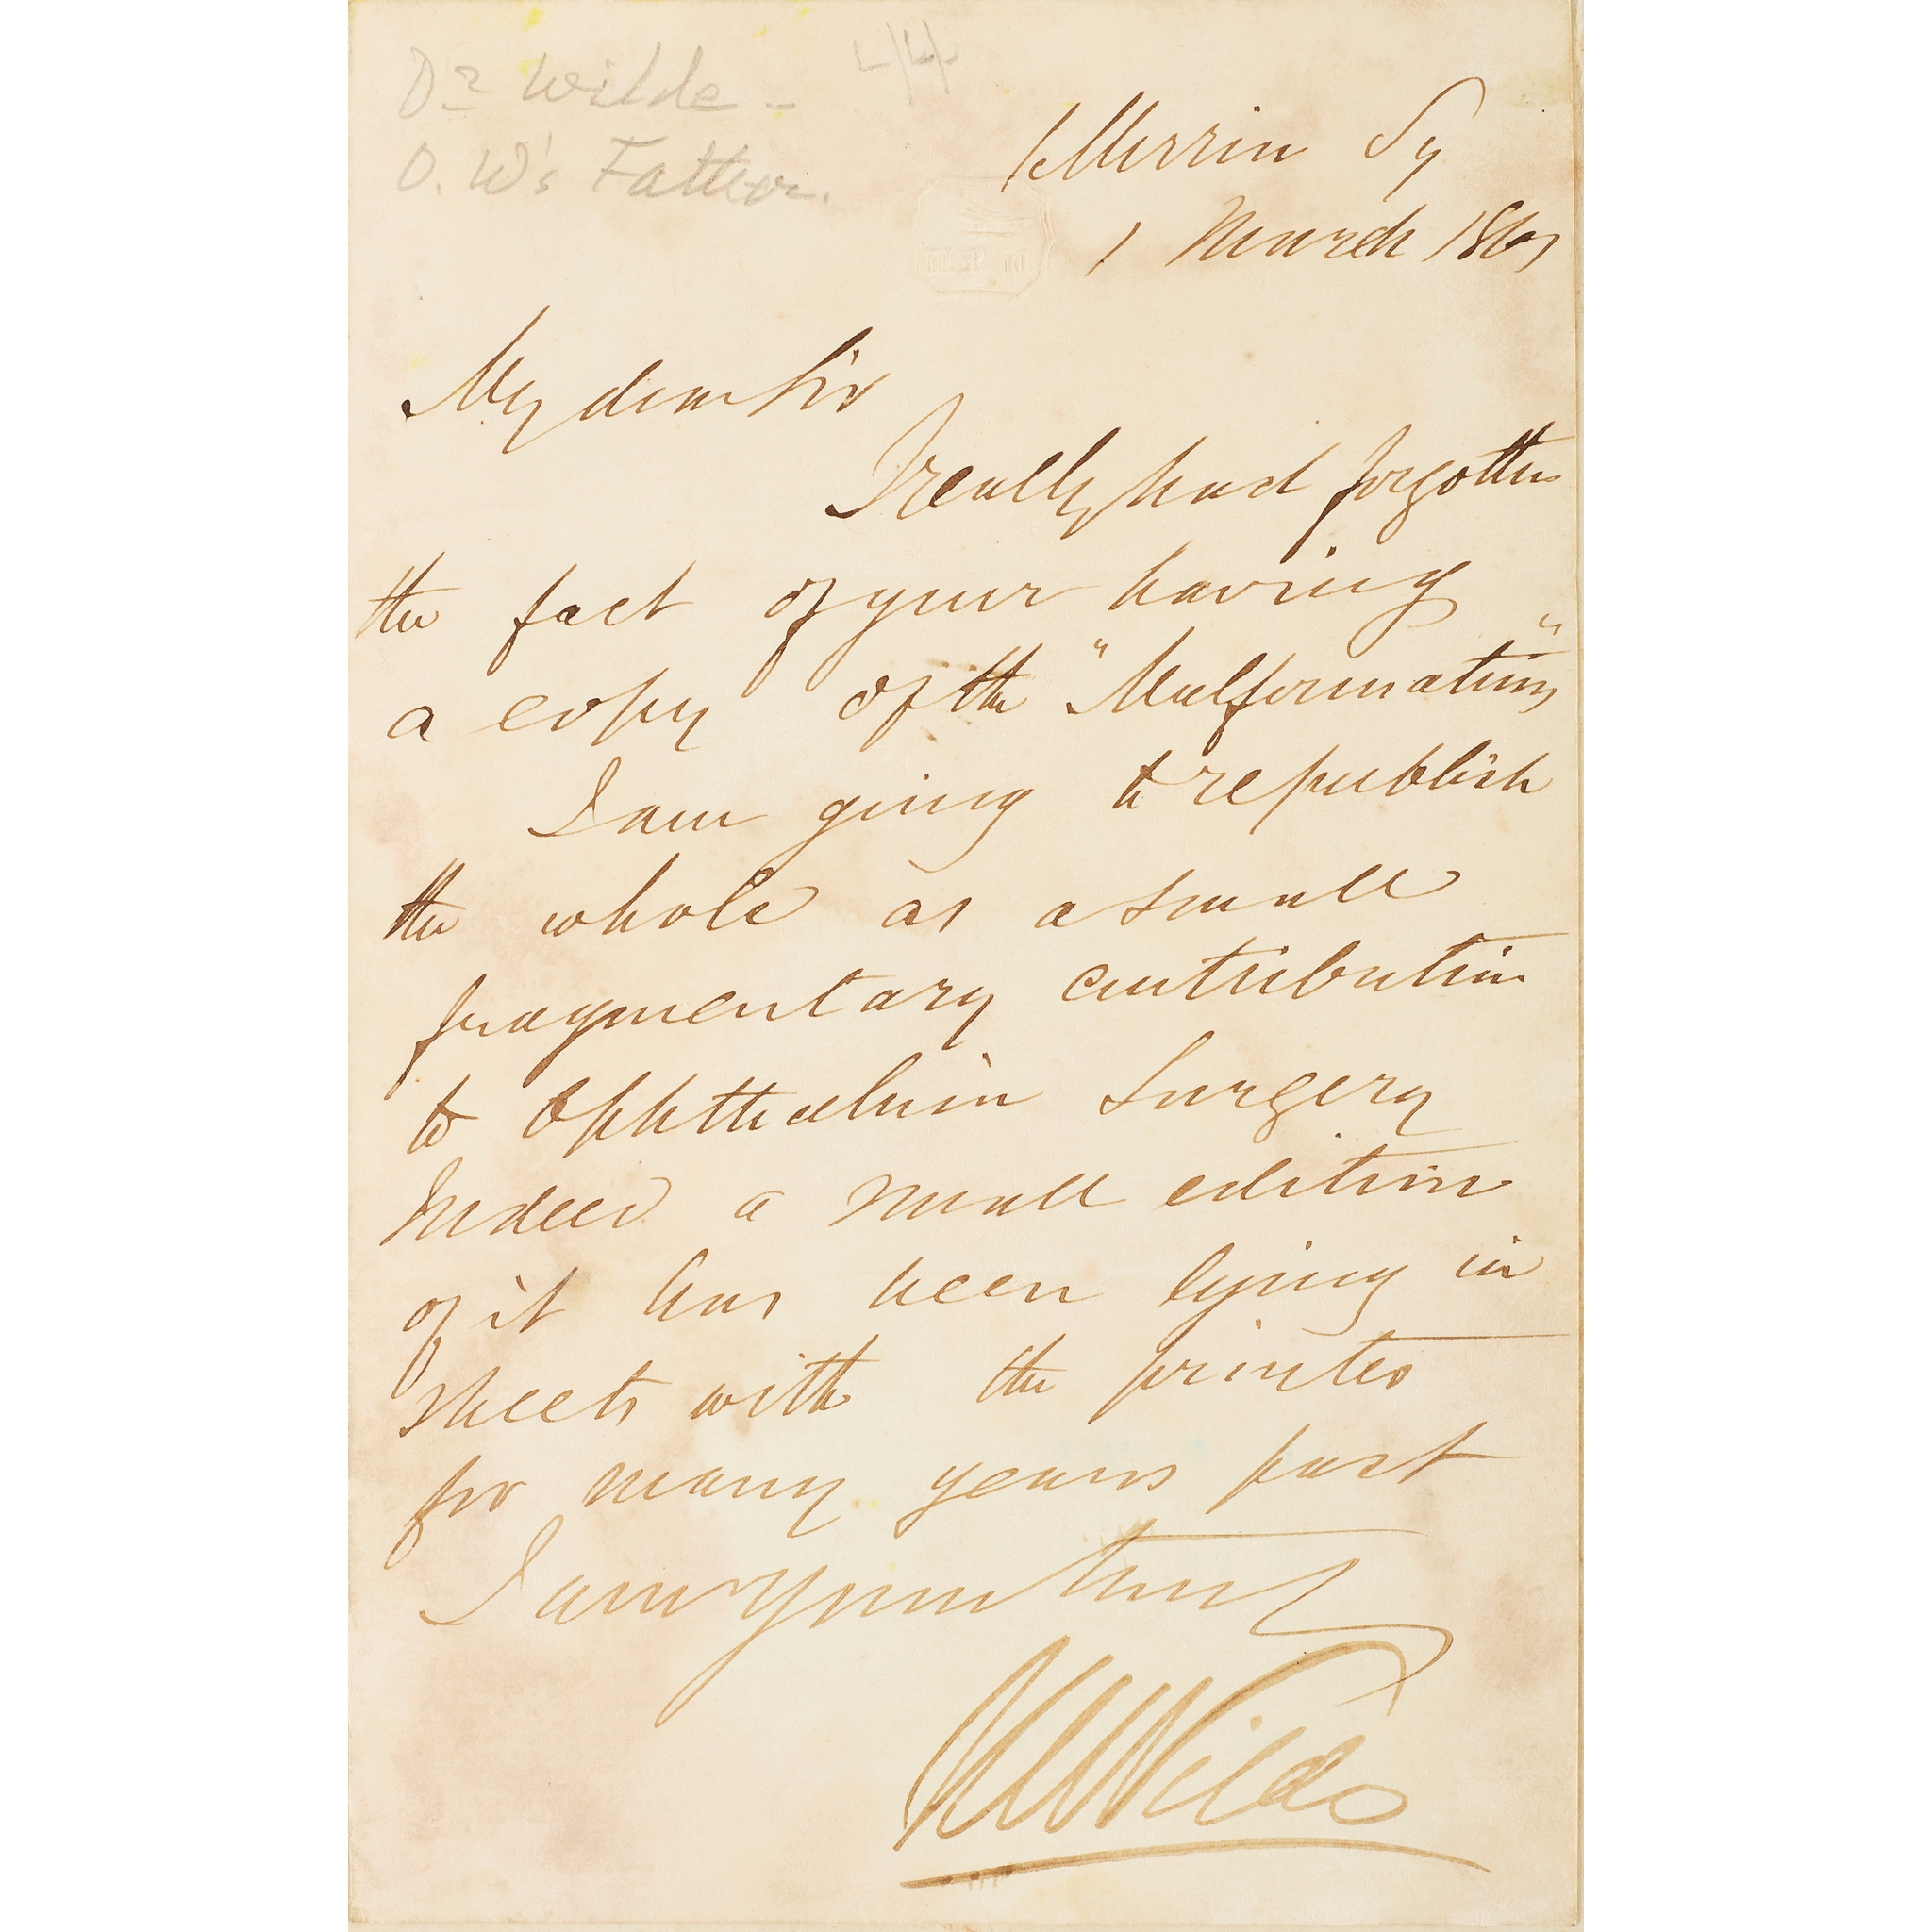 Dr Wilde -
O. W's Father.
Merrion Sq
1 March 1861
My dear Sir
I really had forgotten
the fact of your having
a copy of the "Malformations"
I am going to republish
the whole as a small
fragmentary contribution
to Ophthalmic Surgery
Indeed a small edition
of it has been lying in
sheets with the printer
for many years past
I am yours truly
W R Wilde